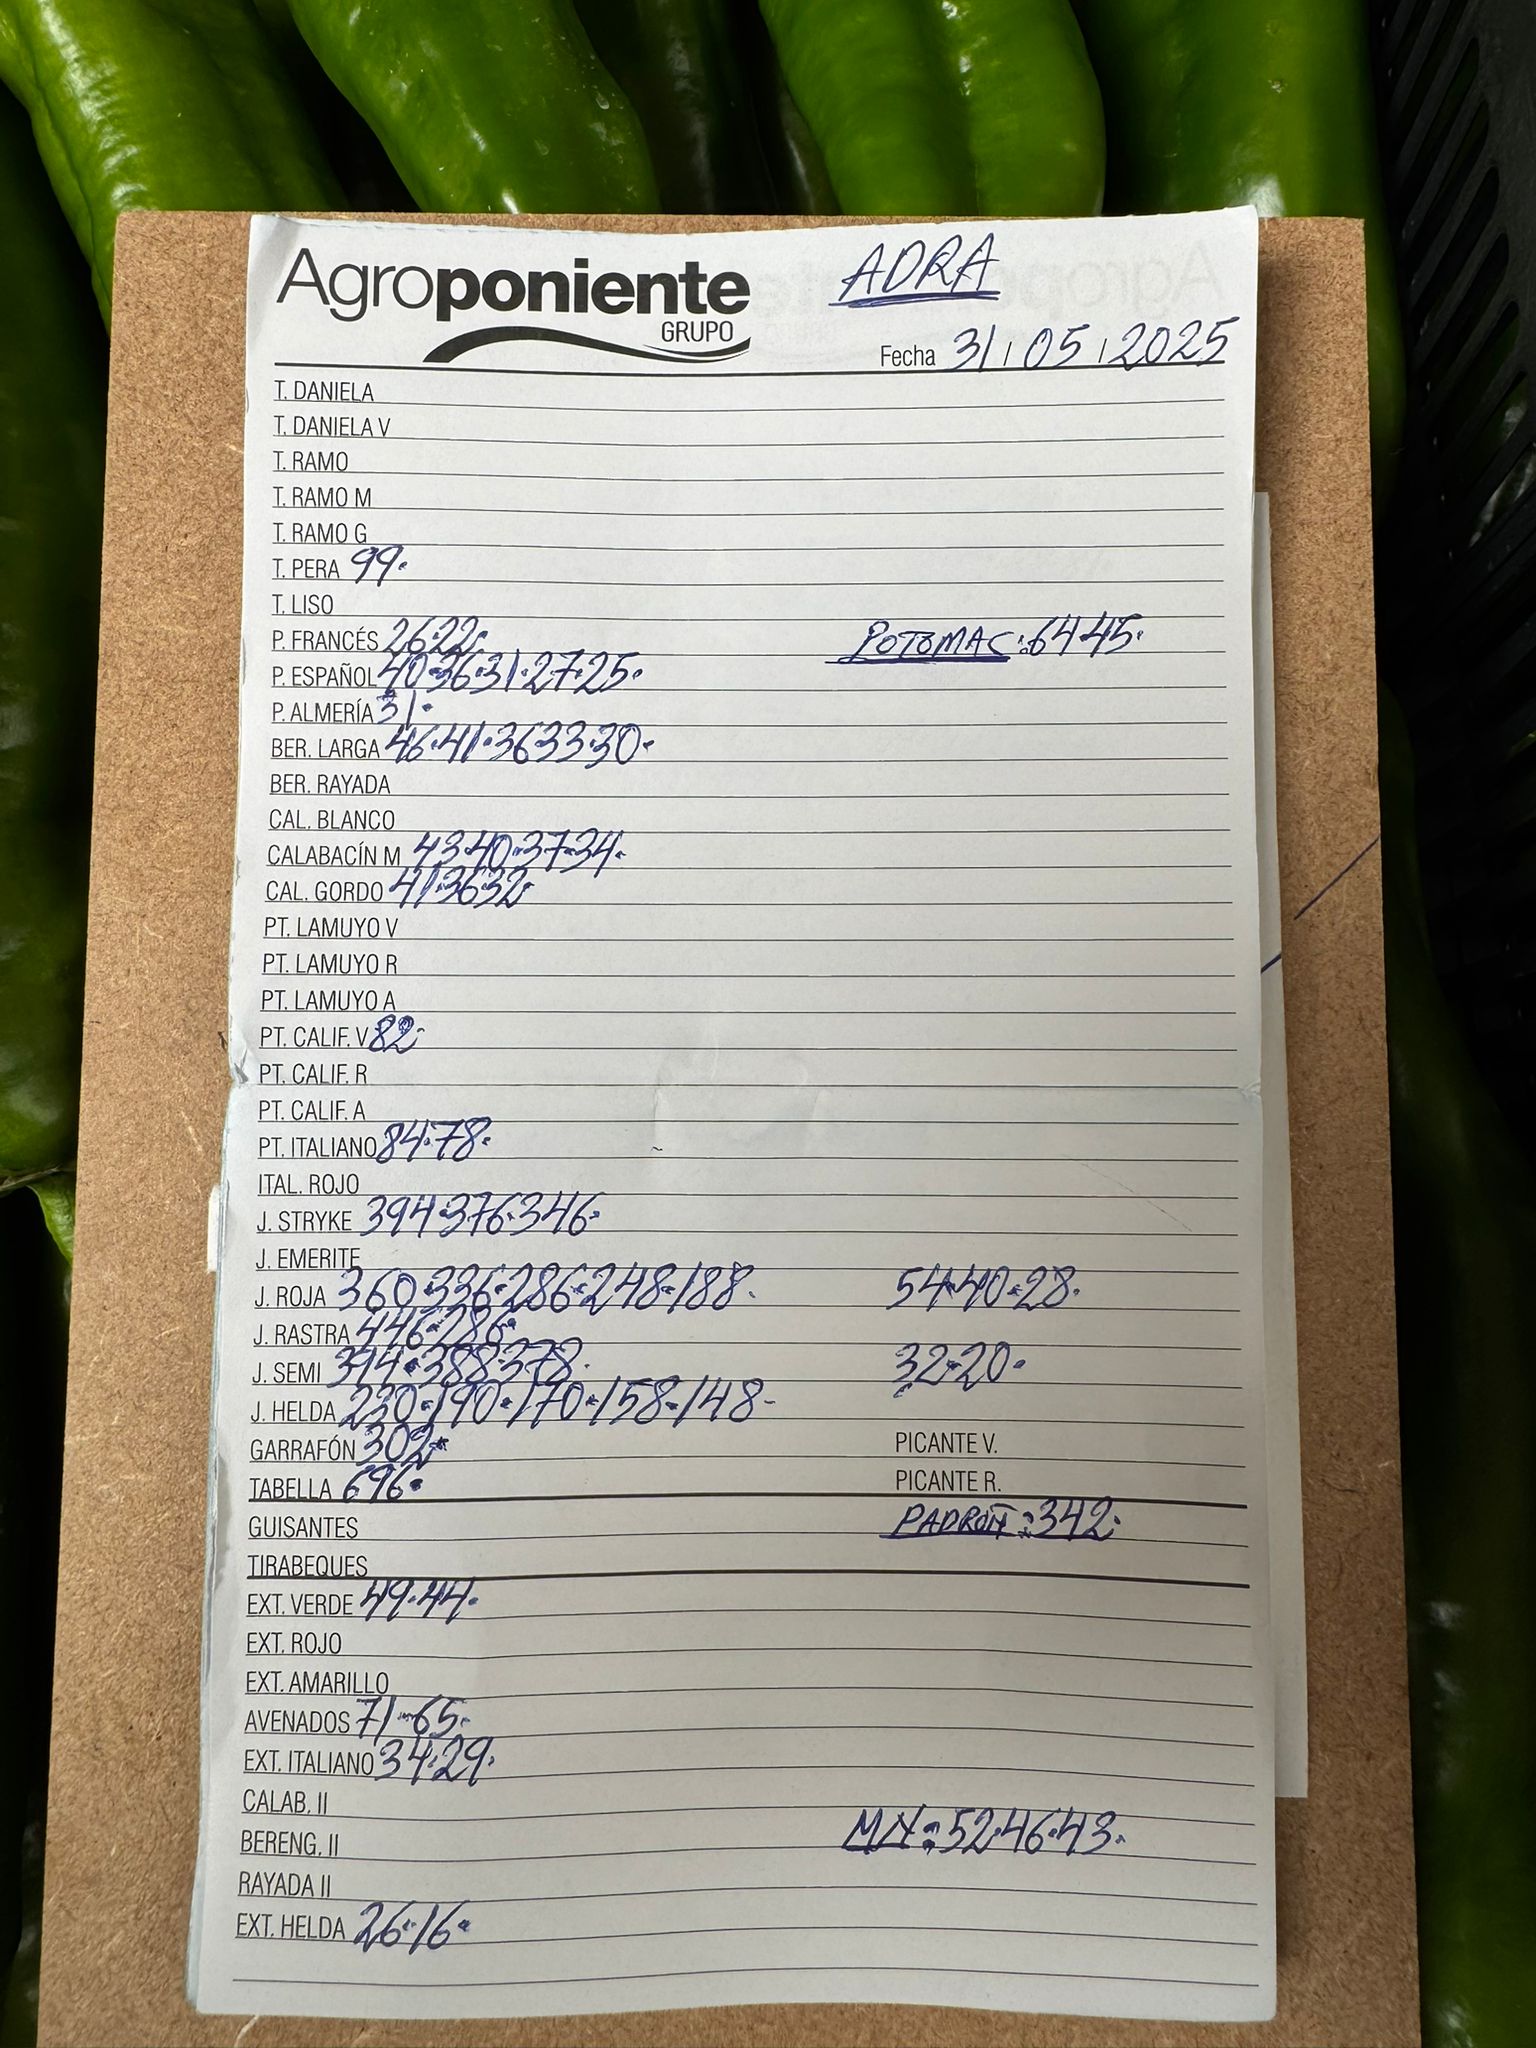 Agroponiente
GRUPO
ADRA
Fecha 31/05/2025
T. DANIELA
T. DANIELA V
T. RAMO
T. RAMO M
T. RAMO G
T. PERA 99.
T. LISO
P. FRANCÉS 26.22. POTOMAC: 64.45.
P. ESPAÑOL 40.36.31.27.25.
P. ALMERÍA 31.
BER. LARGA 46.41.36.33.30.
BER. RAYADA
CAL. BLANCO
CALABACÍN M 43.40.37.34.
CAL. GORDO 41.36.32.
PT. LAMUYO V
PT. LAMUYO R
PT. LAMUYO A
PT. CALIF. V 82.
PT. CALIF. R
PT. CALIF. A
PT. ITALIANO 84.78.
ITAL. ROJO
J. STRYKE 394.376.346.
J. EMERITE
J. ROJA 360.336.286.248.188. 54.40.28.
J. RASTRA 446.286.
J. SEMI 394.388.378. 32.20.
J. HELDA 230.190.170.158.148.
GARRAFÓN 302. PICANTE V.
TABELLA 696. PICANTE R.
GUISANTES PADRON: 342.
TIRABEQUES
EXT. VERDE 49.44.
EXT. ROJO
EXT. AMARILLO
AVENADOS 71.65.
EXT. ITALIANO 34.29.
CALAB. II
BERENG. II MN: 52.46.43.
RAYADA II
EXT. HELDA 26.16.